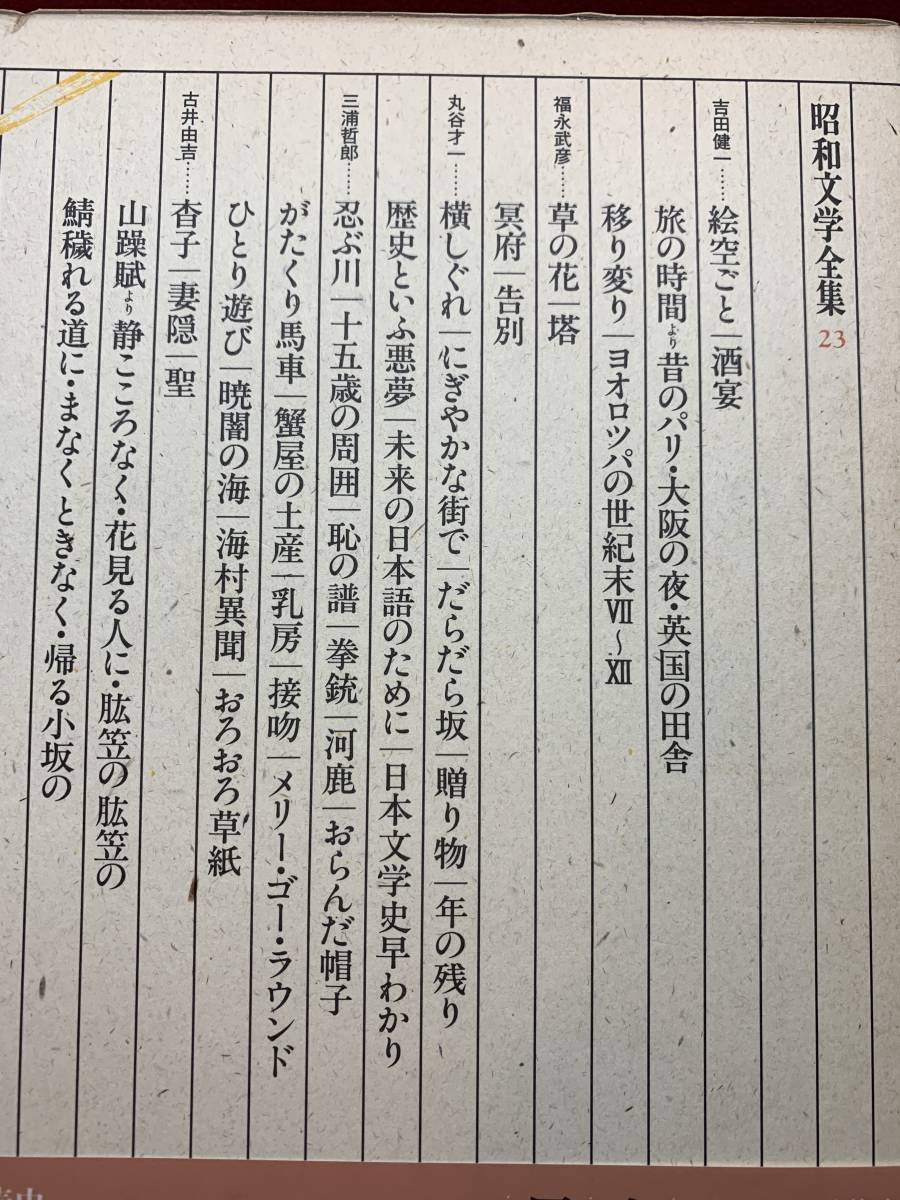 昭和文学全集 23
吉田健一……絵空ごと｜酒宴
旅の時間より 昔のパリ・大阪の夜・英国の田舎
移り変り｜ヨオロツパの世紀末Ⅶ～Ⅻ
福永武彦……草の花｜塔
冥府｜告別
丸谷才一……横しぐれ｜にぎやかな街で｜だらだら坂｜贈り物｜年の残り
歴史といふ悪夢｜未来の日本語のために｜日本文学史早わかり
三浦哲郎……忍ぶ川｜十五歳の周囲｜恥の譜｜拳銃｜河鹿｜おらんだ帽子
がたくり馬車｜蟹屋の土産｜乳房｜接吻｜メリー・ゴー・ラウンド
ひとり遊び｜暁闇の海｜海村異聞｜おろおろ草紙
古井由吉……杳子｜妻隠｜聖
山躁賦より 静こころなく・花見る人に・肱笠の肱笠の
鯖穢れる道に・まなくときなく・帰る小坂の